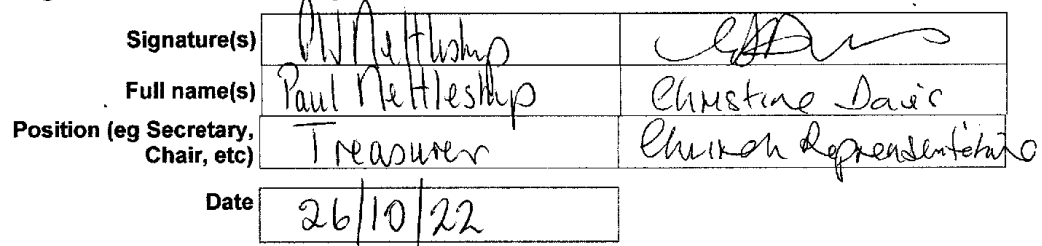 Signature(s) PJ Nettleship
Full name(s) Paul Nettleship Christine Davis
Position (eg Secretary, Chair, etc) Treasurer Church Representative
Date 26/10/22